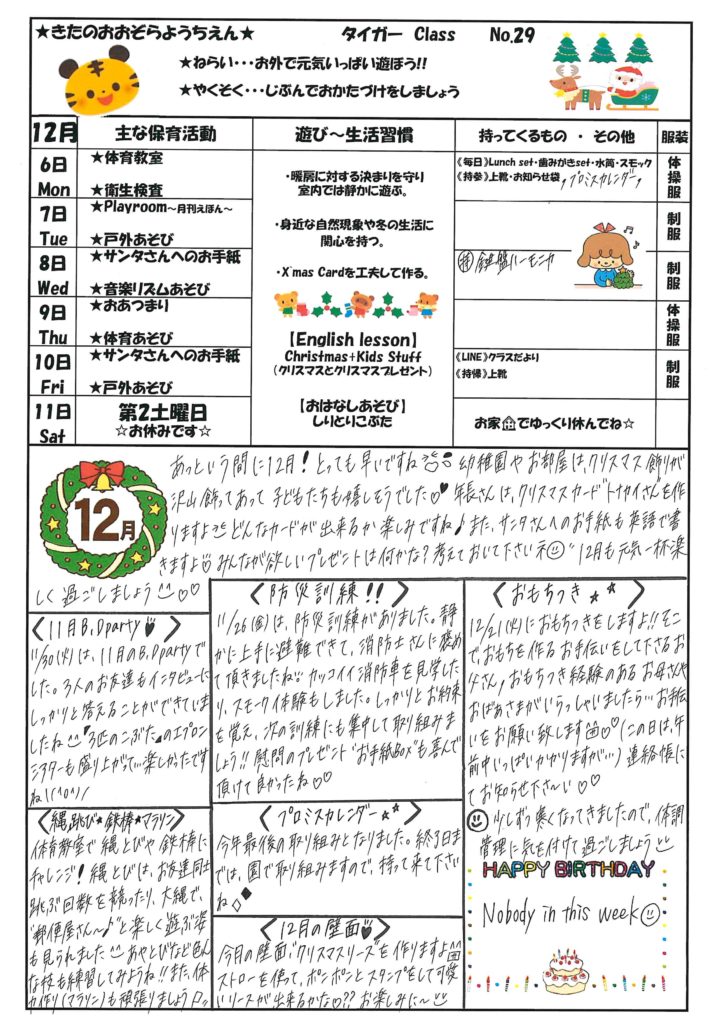 ★きたのおおぞらようちえん★ タイガー Class No.29
★ねらい・・・お外で元気いっぱい遊ぼう!!
★やくそく・・・じぶんでおかたづけをしましょう
12月 主な保育活動 遊び～生活習慣 持ってくるもの ・ その他 服装
6日 Mon
★体育教室
★衛生検査
7日 Tue
★Playroom～月刊えほん～
★戸外あそび
8日 Wed
★サンタさんへのお手紙
★音楽リズムあそび
9日 Thu
★おあつまり
★体育あそび
10日 Fri
★サンタさんへのお手紙
★戸外あそび
11日 Sat
第2土曜日
☆お休みです☆
・暖房に対する決まりを守り
室内では静かに遊ぶ。
・身近な自然現象や冬の生活に
関心を持つ。
・X'mas Cardを工夫して作る。
【English lesson】
Christmas+Kids Stuff
(クリスマスとクリスマスプレゼント)
【おはなしあそび】
しりとりこぶた
《毎日》Lunch set・歯みがきset・水筒・スモック
《持参》上靴・お知らせ袋 ,プロミスカレンダー,
持 鍵盤ハーモニカ
《LINE》クラスだより
《持帰》上靴
お家でゆっくり休んでね☆
体操服
制服
制服
体操服
制服
12月
あっという間に12月!とっても早いですね 幼稚園やお部屋は、クリスマス飾りが
沢山飾ってあって子どもたちも嬉しそうでした♡♥ 年長さんは、クリスマスカード"トナカイさん"を作
りますよ どんなカードが出来るか楽しみですね♪また、サンタさんへのお手紙も英語で書
きますよ みんなが欲しいプレゼントは何かな?考えておいて下さいネ 12月も元気一杯楽
しく過ごしましょう ♡♡
<11月B.Dparty♥>
11/30(火)は、11月のB.Dpartyで
した。3人のお友達もインタビューに
しっかりと答えることができていま
したね "3匹のこぶた"のエプロン
シアターも盛り上がって…楽しかったです
ね!(^o^)/
<縄跳び★鉄棒★マラソン>
体育教室で縄とびや鉄棒に
チャレンジ!縄とびは、お友達同士
跳ぶ回数を競ったり、大縄で、
"郵便屋さん～♪"と楽しく遊ぶ姿
も見られました あやとびなど色ん
な技も練習してみようね!!また、体
力作り(マラソン)も頑張りましょう
<防災訓練!!>
11/26(金)は、防災訓練がありました。静
かに上手に避難できて、消防士さんに褒め
て頂きましたね!! カッコイイ消防車を見学した
り、スモーク体験もしました。しっかりとお約束
を覚え、次の訓練にも集中して取り組みま
しょう!!慰問のプレゼント"お手紙Box"も喜んで
頂けて良かったね♡♡
<プロミスカレンダー★★>
今年最後の取り組みとなりました。終了日ま
では、園で取り組みますので、持って来て下さい
ね◇◆
<12月の壁面♥>
今月の壁面、"クリスマスリース"を作りますよ
ストローを使って、ポンポンとスタンプをして可愛
いリースが出来るかな♡??お楽しみに～
<おもちつき★★>
12/21(火)におもちつきをしますよ!!そこ
で、おもちを作るお手伝いをして下さるお
父さん,おもちつき経験のあるお母さんや
おばあさまがいらっしゃいましたら…お手伝
いをお願い致します♡(この日は、午
前中いっぱいかかりますが…)連絡帳に
てお知らせ下さ～い♡♡
少しずつ寒くなってきましたので、体調
管理に気を付けて過ごしましょう
HAPPY BIRTHDAY
Nobody in this week